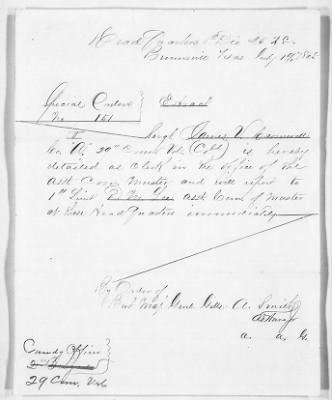 Head Quarters 1st Div 25 A.C.
Brownsville Texas July 19th 1865
Special Orders } Extract
No 151
I Sergt James V.
Co 29th Conn Vols (Cold) is hereby
detailed as Clerk in the Office of the
Asst Com Muster and will report to
1st Lieut Asst Com of Muster
at these Head Quarters immediately
By Order of
Bvt Maj Genl Giles A. Smith
A. A. G.
29 Conn Vols